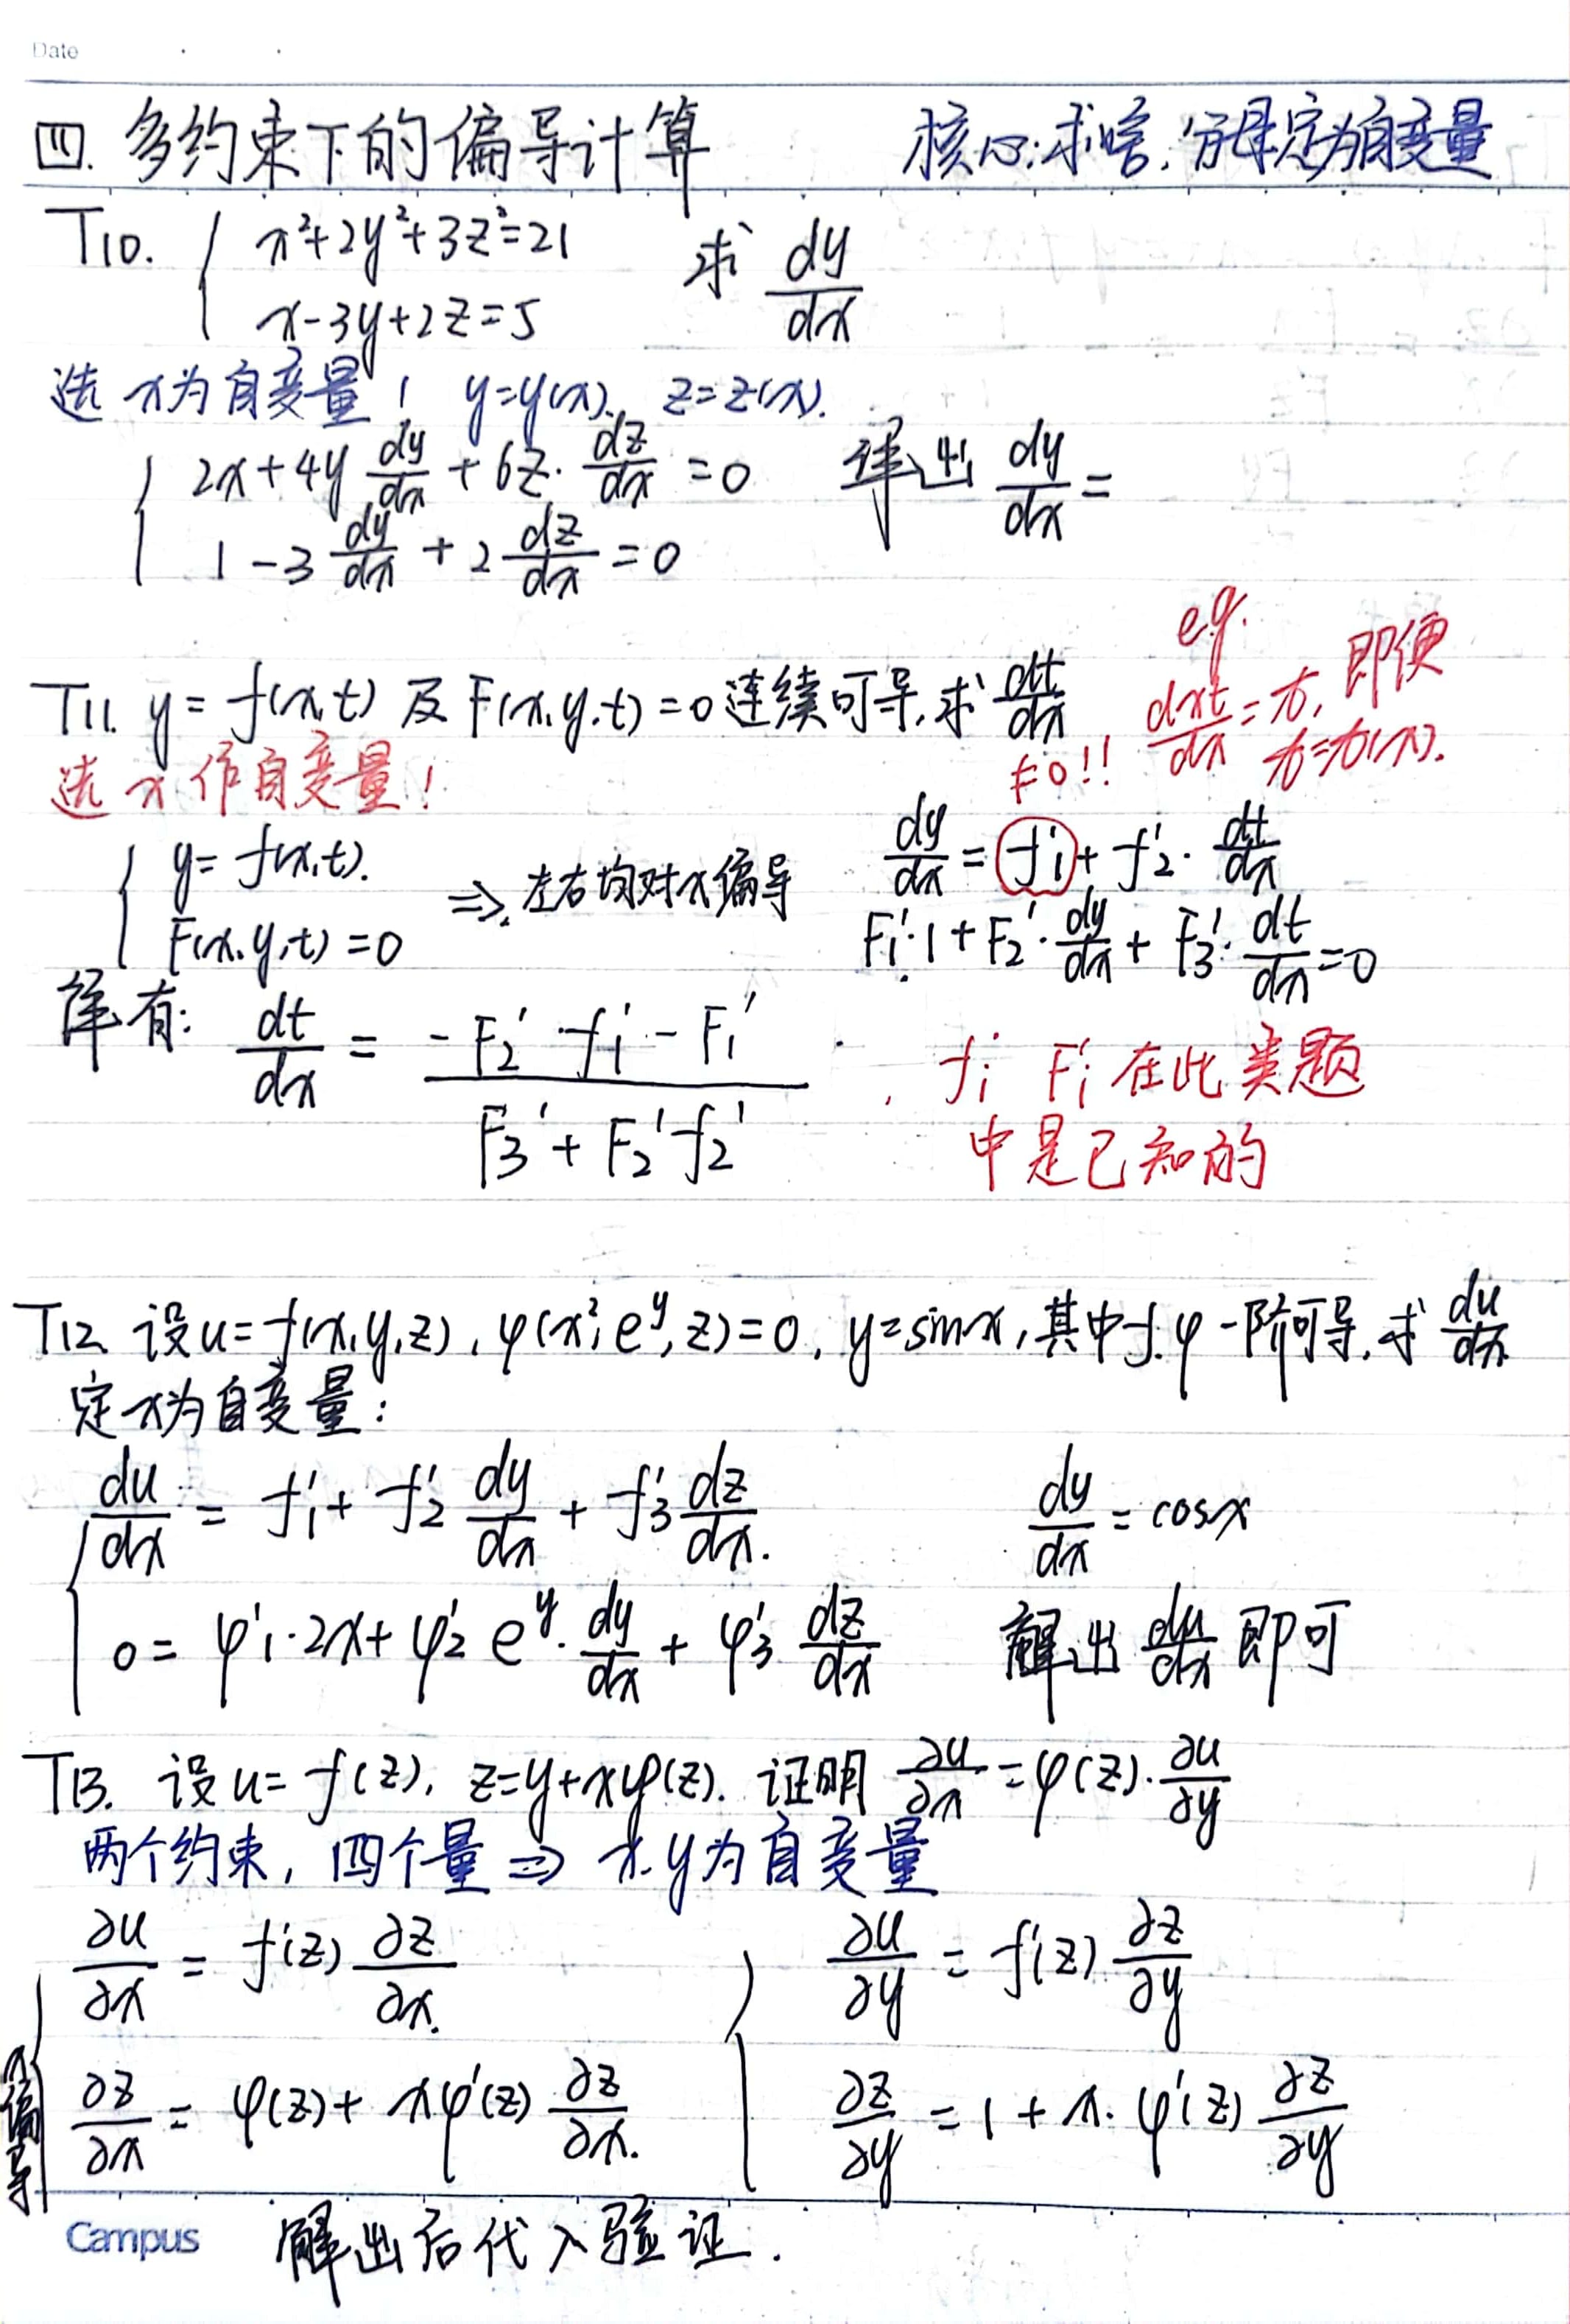 Date
四. 多约束下的偏导计算 核心:求啥,分母定为自变量
T10. { x²+2y²+3z²=21 求 dy/dx
x-3y+2z=5
选 x为自变量! y=y(x). z=z(x).
{ 2x+4y dy/dx + 6z· dz/dx = 0 解出 dy/dx =
1-3 dy/dx + 2 dz/dx = 0
e.g.
T11. y = f(x,t) 及 F(x,y,t)=0 连续可导,求 dt/dx dxt/dx = t, 即便
选 x 作自变量! ≠0!! t=t(x).
{ y = f(x,t). ⇒ 左右均对x偏导 dy/dx = f₁' + f₂'· dt/dx
F(x,y,t)=0 F₁'·1 + F₂'· dy/dx + F₃'· dt/dx = 0
解有: dt/dx = (-F₂'·f₁' - F₁')/(F₃' + F₂'f₂') . fi' Fi' 在此类题
中是已知的
T12. 设u=f(x,y,z), φ(x², e^y, z)=0, y=sinx,其中f.φ一阶可导,求 du/dx
定x为自变量:
{ du/dx = f₁' + f₂' dy/dx + f₃' dz/dx. dy/dx = cosx
0 = φ'₁·2x + φ'₂ e^y· dy/dx + φ'₃ dz/dx 解出 du/dx 即可
T13. 设u=f(z), z=y+xφ(z). 证明 ∂u/∂x = φ(z)· ∂u/∂y
两个约束, 四个量 ⇒ x.y为自变量
{ ∂u/∂x = f'(z) ∂z/∂x. { ∂u/∂y = f'(z) ∂z/∂y
x偏导 ∂z/∂x = φ(z) + xφ'(z) ∂z/∂x. ∂z/∂y = 1 + x·φ'(z) ∂z/∂y
Campus 解出后代入验证.